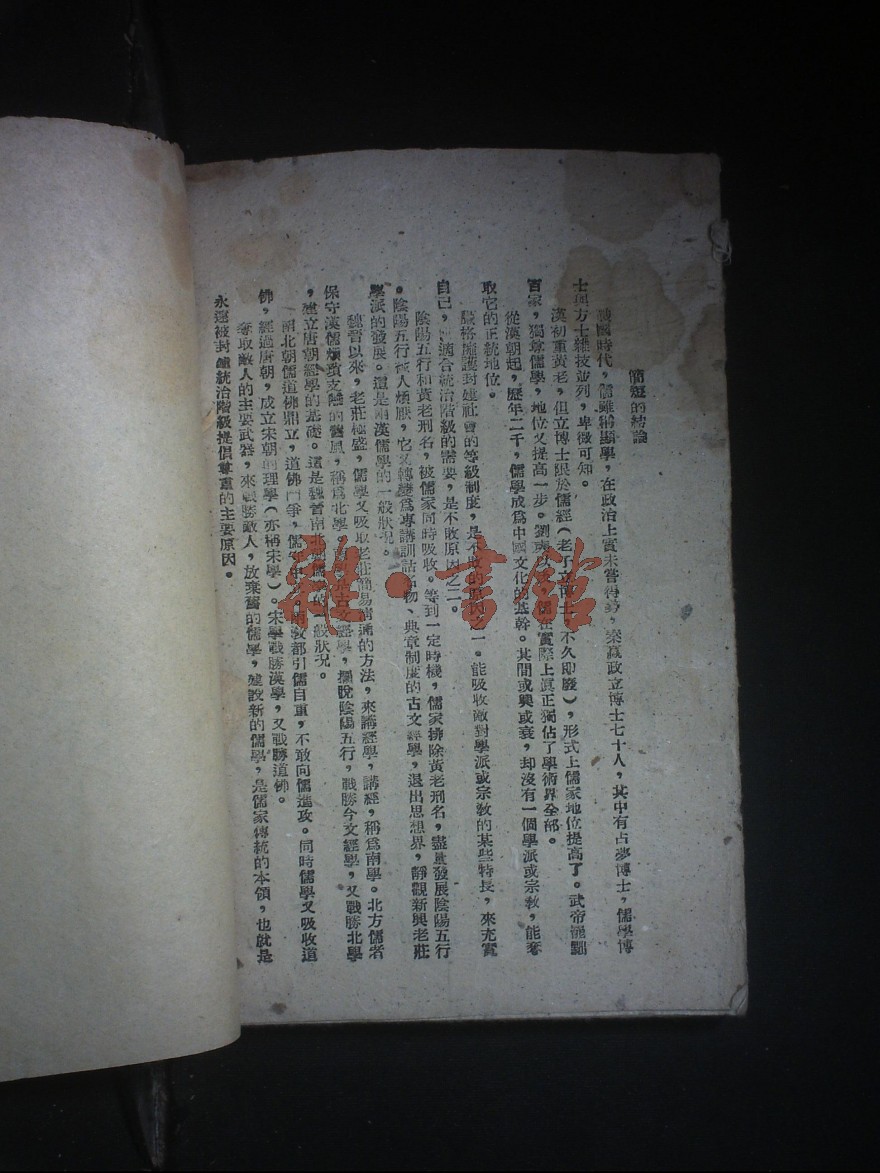 簡短的結論
戰國時代，儒雖稱顯學，在政治上實未嘗得勢，秦嬴政立博士七十人，其中有占夢博士，儒學博
士與方士雜技並列，卑微可知。
漢初重黃老，但立博士限於儒經（老子立博士，不久即廢），形式上儒家地位提高了。武帝罷黜
百家，獨尊儒學，地位又提高一步。劉 在實際上真正獨佔了學術界全部。
從漢朝起，歷年二千，儒學成爲中國文化的基幹。其間或興或衰，却沒有一個學派或宗教，能奪
取它的正統地位。
嚴格擁護封建社會的等級制度，是不敗的原因之一。能吸收敵對學派或宗教的某些特長，來充實
自己，適合統治階級的需要，是不敗原因之二。
陰陽五行和黃老刑名，被儒家同時吸收。等到一定時機，儒家排除黃老刑名，盡量發展陰陽五行
。陰陽五行被人煩厭，它又轉變爲專講訓詁名物、典章制度的古文經學，退出思想界，靜觀新興老莊
學派的發展。這是兩漢儒學的一般狀況。
魏晉以來，老莊極盛，儒學又吸取老莊簡易清通的方法，來講經學，講經，稱爲南學。北方儒者
保守漢儒煩瑣支離的舊風，稱爲北學。 古 經學，擺脫陰陽五行，戰勝今文經學，又戰勝北學
，建立唐朝經學的基礎。這是魏晉南北朝儒 的一般狀況。
南北朝儒道佛鼎立，道佛鬥爭，儒 中 。兩教都引儒自重，不敢向儒進攻。同時儒學又吸收道
佛，經過唐朝，成立宋朝的理學（亦稱宋學）。宋學戰勝漢學，又戰勝道佛。
奪取敵人的主要武器，來戰勝敵人，放棄舊的儒學，建設新的儒學，是儒家傳統的本領，也就是
永遠被封建統治階級提倡尊重的主要原因。
雜·書館